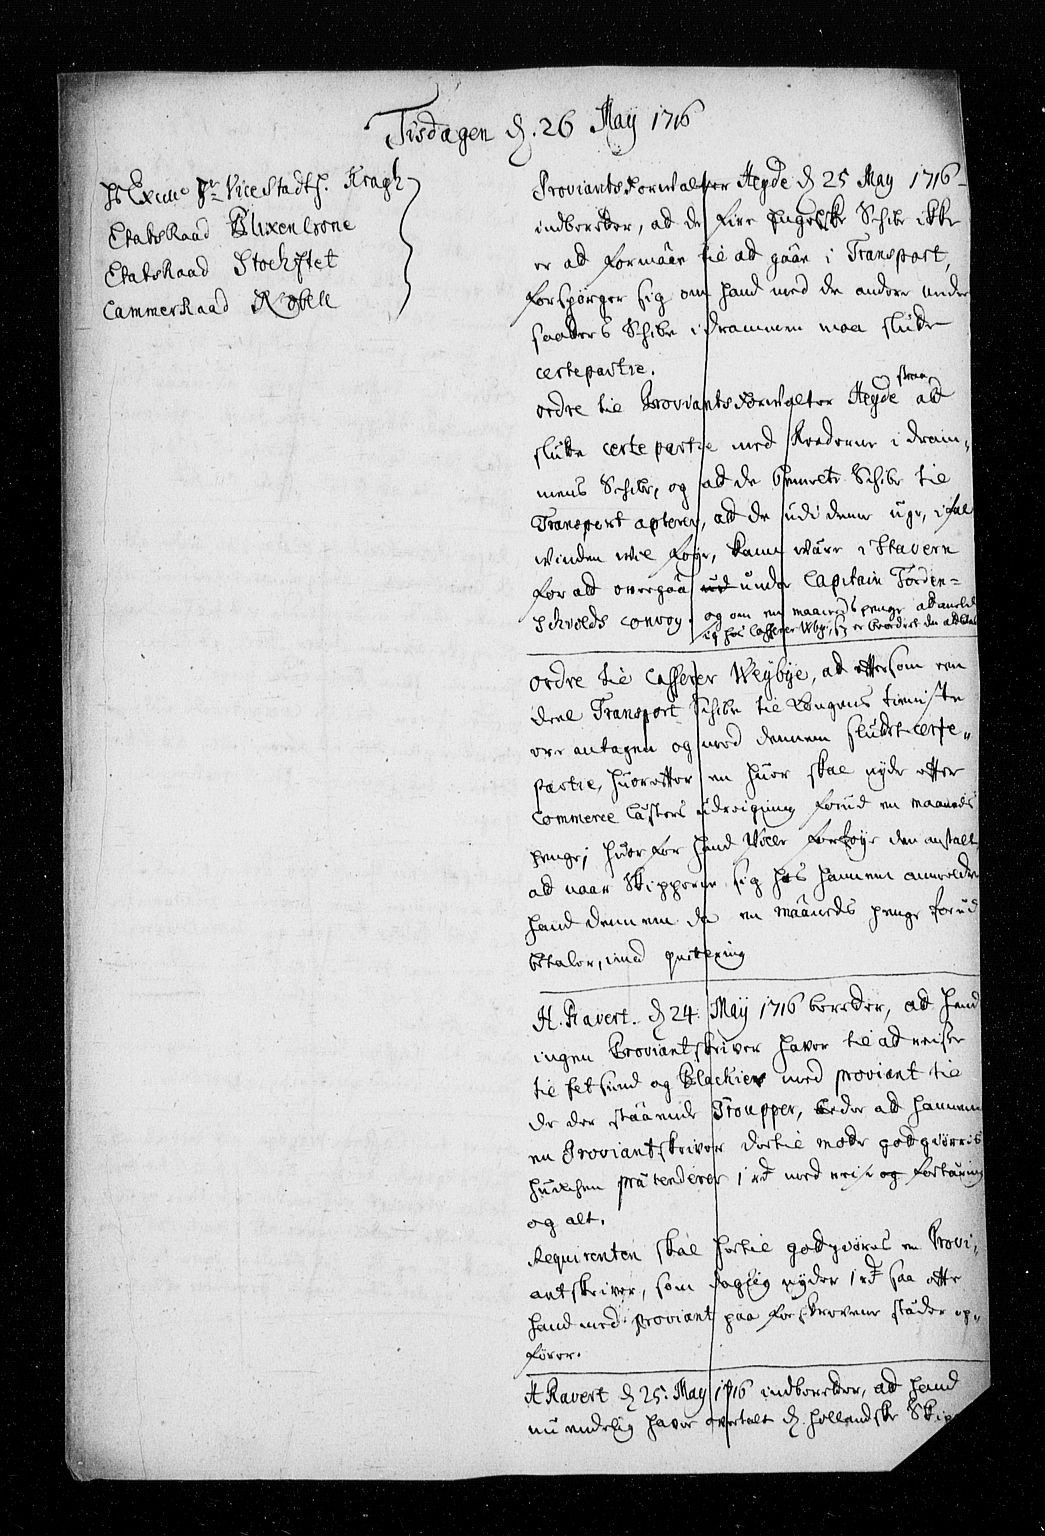 Tisdagen d. 26 May 1716
Hs Excell. Hr Vice Stadth. Kragh
EtatsRaad Blixencrone
EtatsRaad Stockflet
CammerRaad Nobell
Proviantsforwalter Heyde d 25 May 1716
indberetter, ad de fire Engelske Schibe ikke
er ad formaae til ad gaae i Transport,
forspørger sig om hand med de andre under
saatters Schibe i drammen maa slutte
certepartie.
ordre til Proviantsforwalter Heyde strax ad
slutte certepartie med Rederne i dram,
mens Schibe, og ad de bemelte Schibe til
Transport apterer, ad de udi denne uge, i fal
winden wil føye, kand wære i Stavern
for ad overgaa ud under Capitain Torden=
Schiolds convoy. og om en maaneds penge ad anmelde
sig hos Casserer Wybye, som er beordret den ad betale
ordre til Casserer Weybye, ad eftersom een
deel Transport Schibe til Kongens tienniste
ere antagen og med dennem sluttet certe,,
partie, huorefter en huer skal nyde efter
Commerce Lästers udreigning forud en maaneds
penge; huorfor hand wille forføye den anstalt
ad naar Skipperne sig hos hannem anmelder
hand dennem da en maaneds penge forud
betaler, imod qvitering
H. Ravert. d 24. May 1716 beretter, ad hand
ingen Proviantskriver haver til ad reise
til fetsund og Blackier med proviant til
de der staaende Troupper, beder ad hannem
en Proviantskriver dertil motte godgiøres
huilchen prætenderer 1 rd med reise og fortæring
og alt.
Requirenten skal hertil godgiøres en Provi,
antskriver, som daglig nyder 1 rd saa ofte
hand med proviant paa forskrevene stæder op,,
fører.
H Ravert d 25. May 1716 indberetter, ad hand
nu endelig haver overtalt d. hollandske Skip